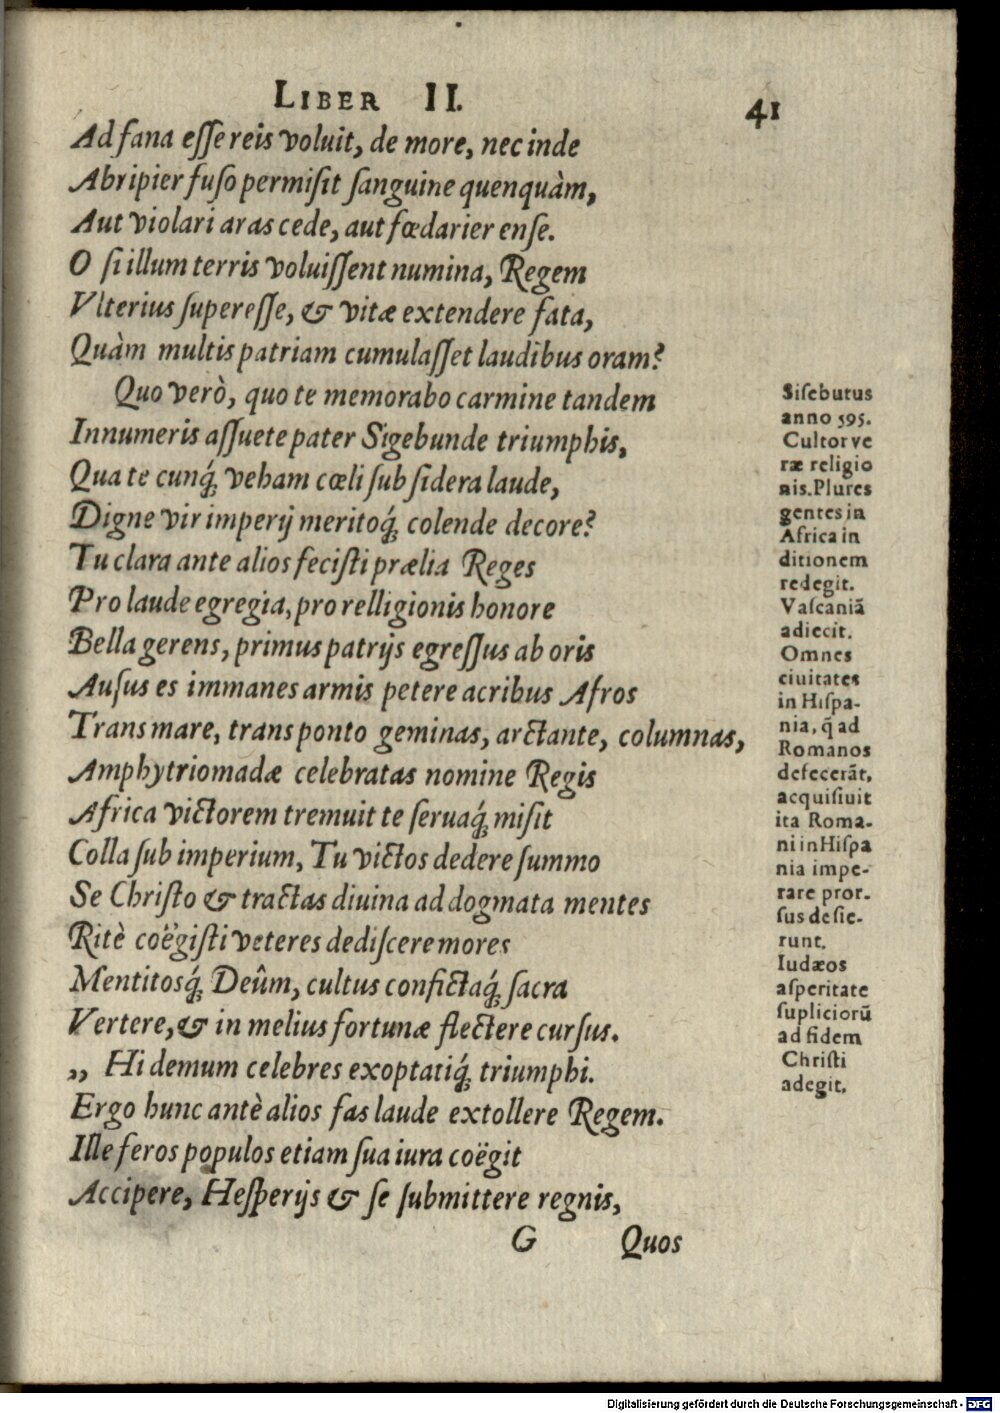 LIBER II. 41
Ad fana eſſe reis voluit, de more, nec inde
Abripier fuſo permiſit ſanguine quenquàm,
Aut violari aras cede, aut fœdarier enſe.
O ſi illum terris voluiſſent numina, Regem
Vlterius ſupereſſe, & vitæ extendere fata,
Quàm multis patriam cumulaſſet laudibus oram?
Quo verò, quo te memorabo carmine tandem
Innumeris aſſuete pater Sigebunde triumphis,
Qua te cunq́; veham cœli ſub ſidera laude,
Digne vir imperij meritoq́; colende decore?
Tu clara ante alios feciſti prælia Reges
Pro laude egregia, pro relligionis honore
Bella gerens, primus patrijs egreſſus ab oris
Auſus es immanes armis petere acribus Afros
Trans mare, trans ponto geminas, arctante, columnas,
Amphytriomadæ celebratas nomine Regis
Africa victorem tremuit te ſeruaq́; miſit
Colla ſub imperium, Tu victos dedere ſummo
Se Chriſto & tractas diuina ad dogmata mentes
Ritè coëgiſti veteres dediſcere mores
Mentitosq́; Deûm, cultus confictaq́; ſacra
Vertere, & in melius fortunæ flectere curſus.
„ Hi demum celebres exoptatiq́; triumphi.
Ergo hunc antè alios fas laude extollere Regem.
Ille feros populos etiam ſua iura coëgit
Accipere, Heſperijs & ſe ſubmittere regnis,
G Quos
Siſebutus
anno 595.
Cultor ve
ræ religio
nis. Plures
gentes in
Africa in
ditionem
redegit.
Vaſcaniã
adiecit.
Omnes
ciuitates
in Hiſpa-
nia, q̃ ad
Romanos
defecerãt,
acquiſiuit
ita Roma-
ni in Hiſpa
nia impe-
rare pror-
ſus deſie-
runt.
Iudæos
aſperitate
ſupliciorũ
ad fidem
Chriſti
adegit.
Digitalisierung gefördert durch die Deutsche Forschungsgemeinschaft - DFG